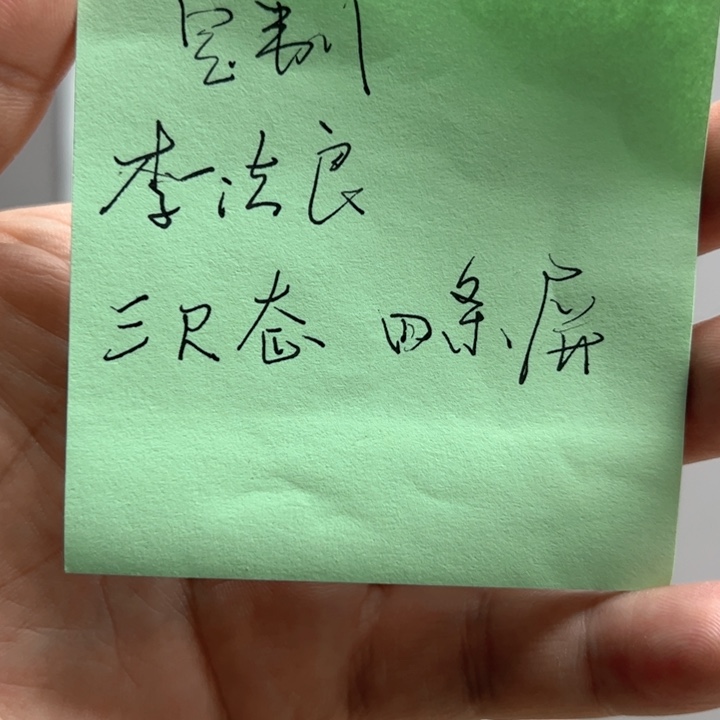 定制
李法良
三尺态 四条屏